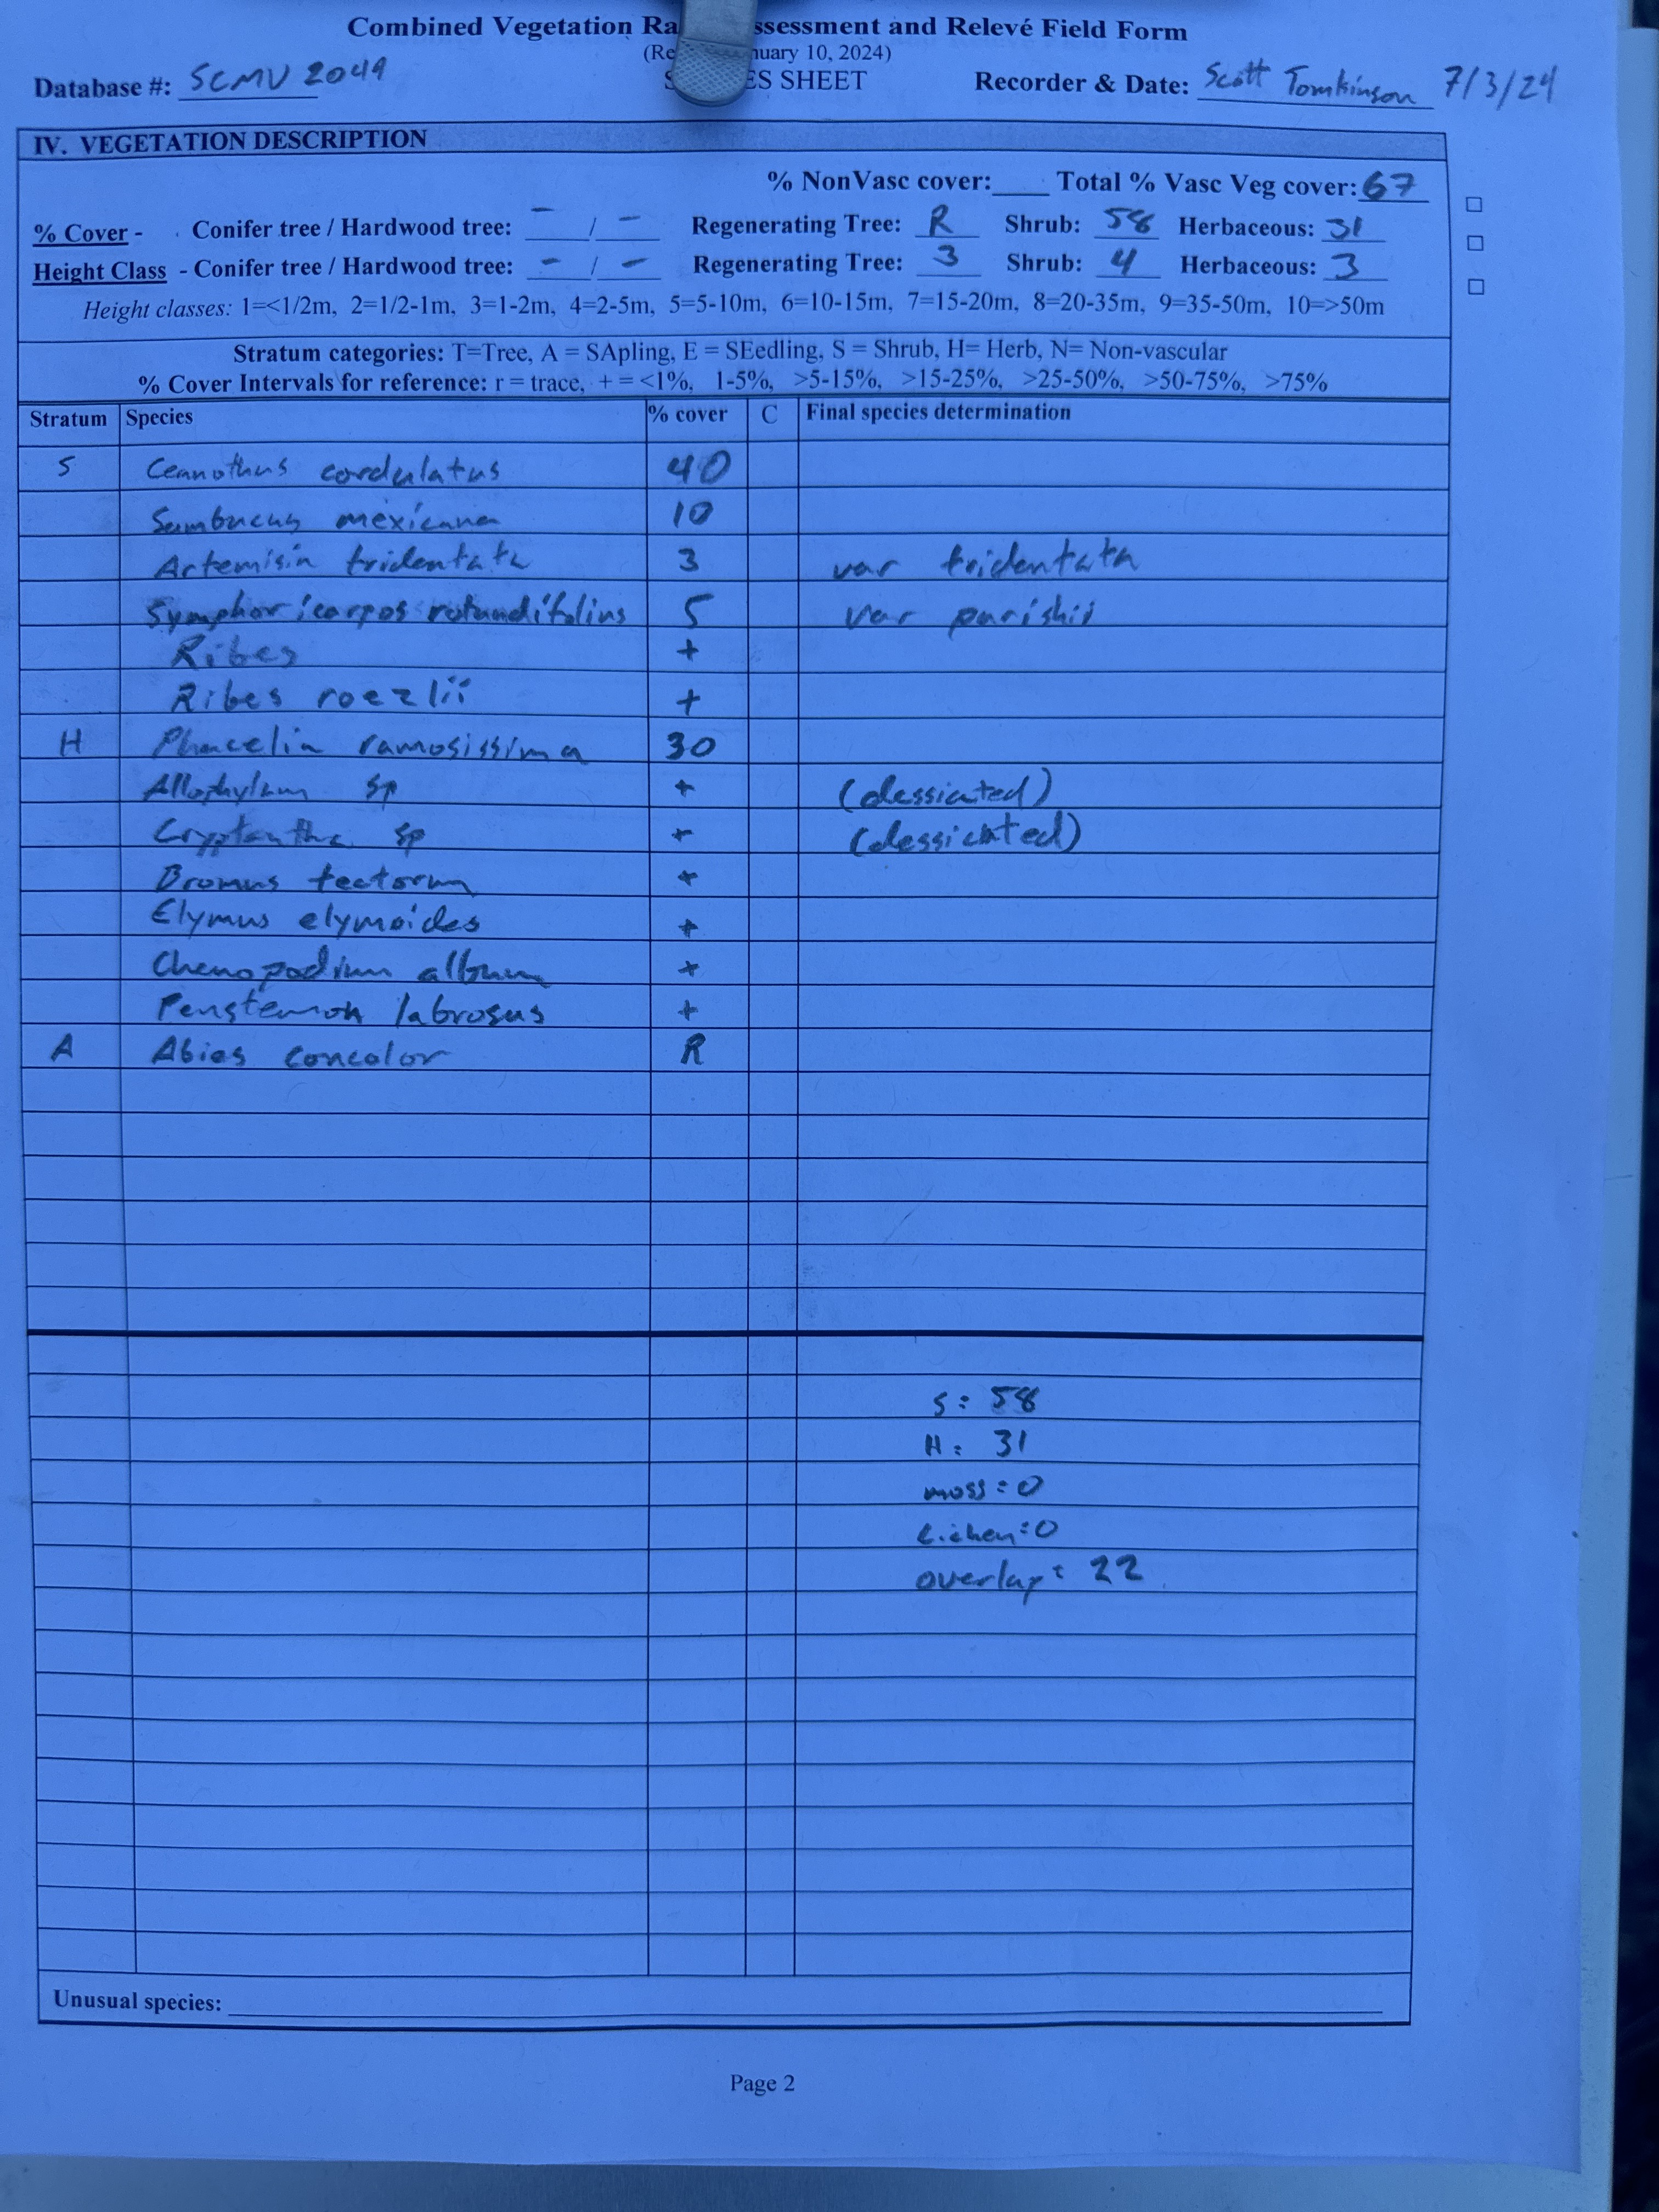 Combined Vegetation Ra ssessment and Relevé Field Form
(Re nuary 10, 2024)
Database #: SCMV 2049 S ES SHEET Recorder & Date: Scott Tomkinson 7/3/24
IV. VEGETATION DESCRIPTION
% NonVasc cover:____ Total % Vasc Veg cover: 67
% Cover - Conifer tree / Hardwood tree: - / - Regenerating Tree: R Shrub: 58 Herbaceous: 31
Height Class - Conifer tree / Hardwood tree: - / - Regenerating Tree: 3 Shrub: 4 Herbaceous: 3
Height classes: 1=<1/2m, 2=1/2-1m, 3=1-2m, 4=2-5m, 5=5-10m, 6=10-15m, 7=15-20m, 8=20-35m, 9=35-50m, 10=>50m
Stratum categories: T=Tree, A = SApling, E = SEedling, S = Shrub, H= Herb, N= Non-vascular
% Cover Intervals for reference: r = trace, + = <1%, 1-5%, >5-15%, >15-25%, >25-50%, >50-75%, >75%
Stratum Species % cover C Final species determination
S Ceanothus cordulatus 40
Sambucus mexicana 10
Artemisia tridentata 3 var tridentata
Symphoricarpos rotundifolius 5 var parishii
Ribes +
Ribes roezlii +
H Phacelia ramosissima 30
Allophylum sp + (dessicated)
Cryptantha sp + (dessicated)
Bromus tectorum +
Elymus elymoides +
Chenopodium album +
Penstemon labrosus +
A Abies concolor R
S: 58
H: 31
moss = 0
Lichen = 0
overlap = 22
Unusual species:
Page 2